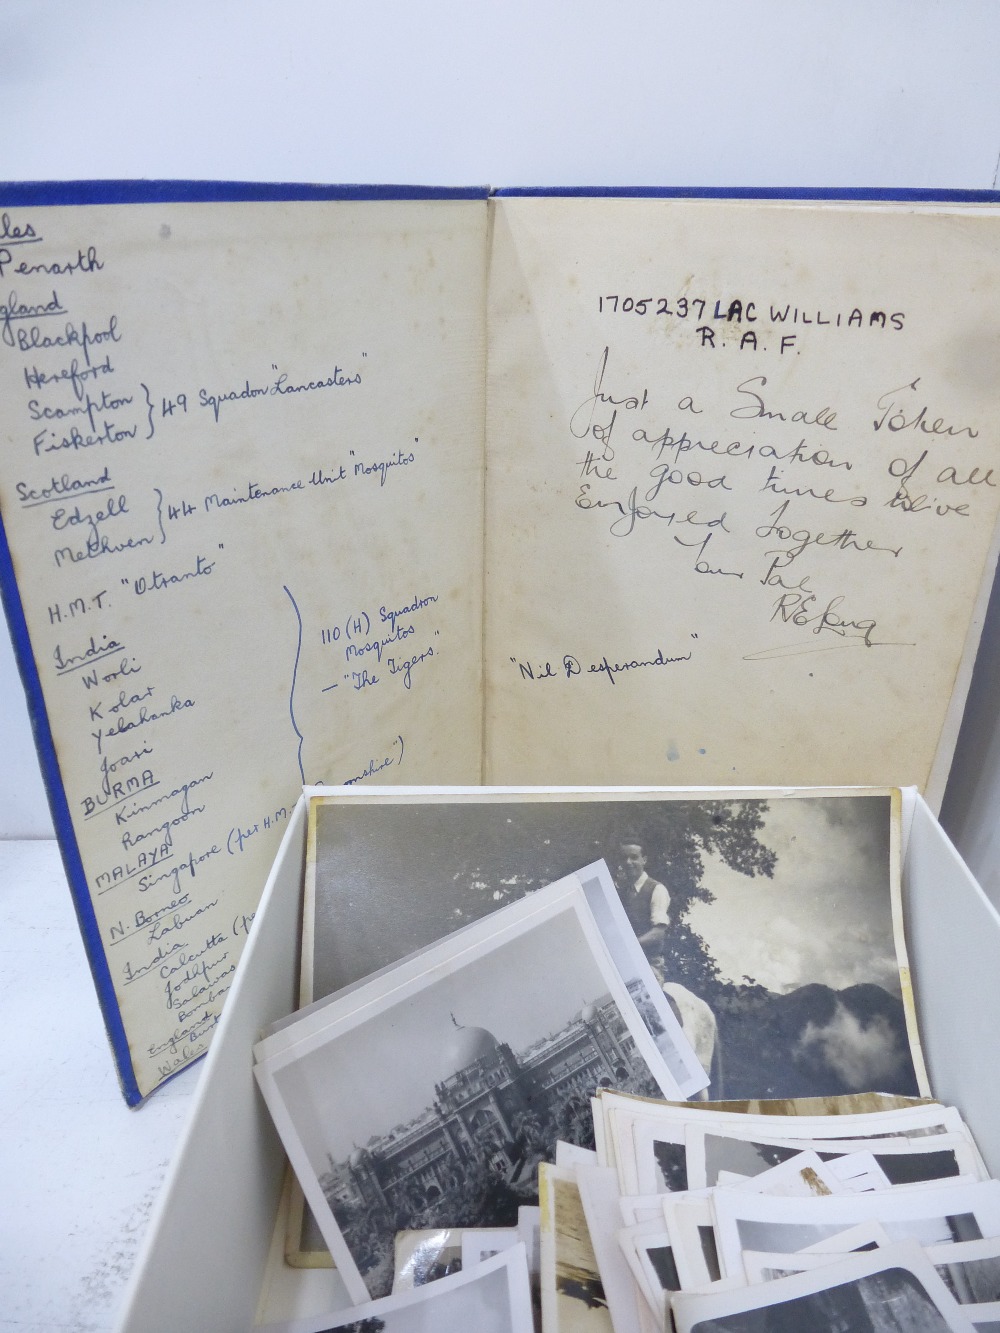 les
Penarth
gland
Blackpool
Hereford
Scampton
Fiskerton
49 Squadron "Lancasters"
Scotland
Edzell
Methven
44 Maintenance Unit "Mosquitos"
H.M.T. "Otranto"
India
Worli
Kolar
Yelahanka
Joari
110 (H) Squadron
Mosquitos
— "The Tigers."
BURMA
Kinmagan
Rangoon
MALAYA
Singapore (per H.M. onshire")
N. Borneo
Labuan
India
Calcutta (pe
Jodhpur
Salawas
Bombay
England
Burt
Wales
1705237 LAC WILLIAMS
R. A. F.
Just a Small Token
of appreciation of all
the good times We've
Enjoyed together
Your Pal
"Nil Desperandum"